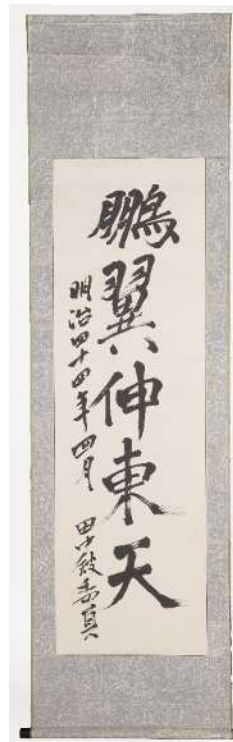 鵬翼伸東天
明治四十四年四月 田中